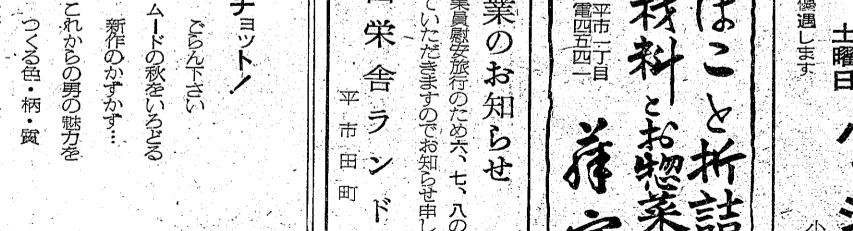 優遇します
土曜日
はこと折詰
材料とお惣菜
平市一丁目
電四五四一
業のお知らせ
業員慰安旅行のため六、七、八の
ていただきますのでお知らせ申し
栄舎ランド
平市田町
チョット！
ごらん下さい
新作のかずかず…
ムードの秋をいろどる
これからの男の魅力を
つくる色・柄・質